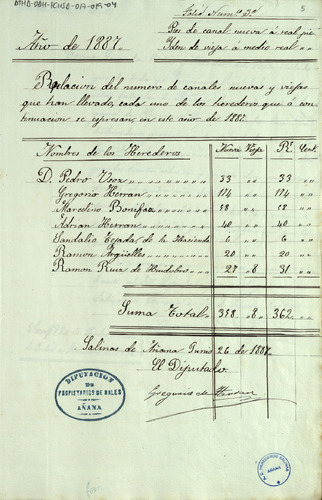 ATHA-DAH-FCHSD-017-019-04
Folio Num.º 3.º
5
Año de 1887.
Pies de canal nueva á real pie
Yden de vieja á medio real
Relacion del numero de canales nuevas y viejas
que han llevado, cada uno de los herederos que á con
tinuacion se espresan, en este año de 1887.
Nombres de los Herederos Nueva Vieja Rs. Cent.
D. Pedro 33 " 33 "
Gregorio Herran 174 " 174 "
Marcelino Bonifaz 58 " 58 "
Adrian Herran 40 " 40 "
Sandalio Tejada de la Hacienda 6 " 6 "
Ramon Arguelles 20 " 20 "
Ramon Ruiz de Huidobro 27 8 31 "
Suma Total 358 8 362 "
Salinas de Añana Junio 26 de 1887.
El Diputado.
Gregorio de Herran
DIPUTACION
DE
PROPIETARIOS DE SALES
AÑANA
AÑANA